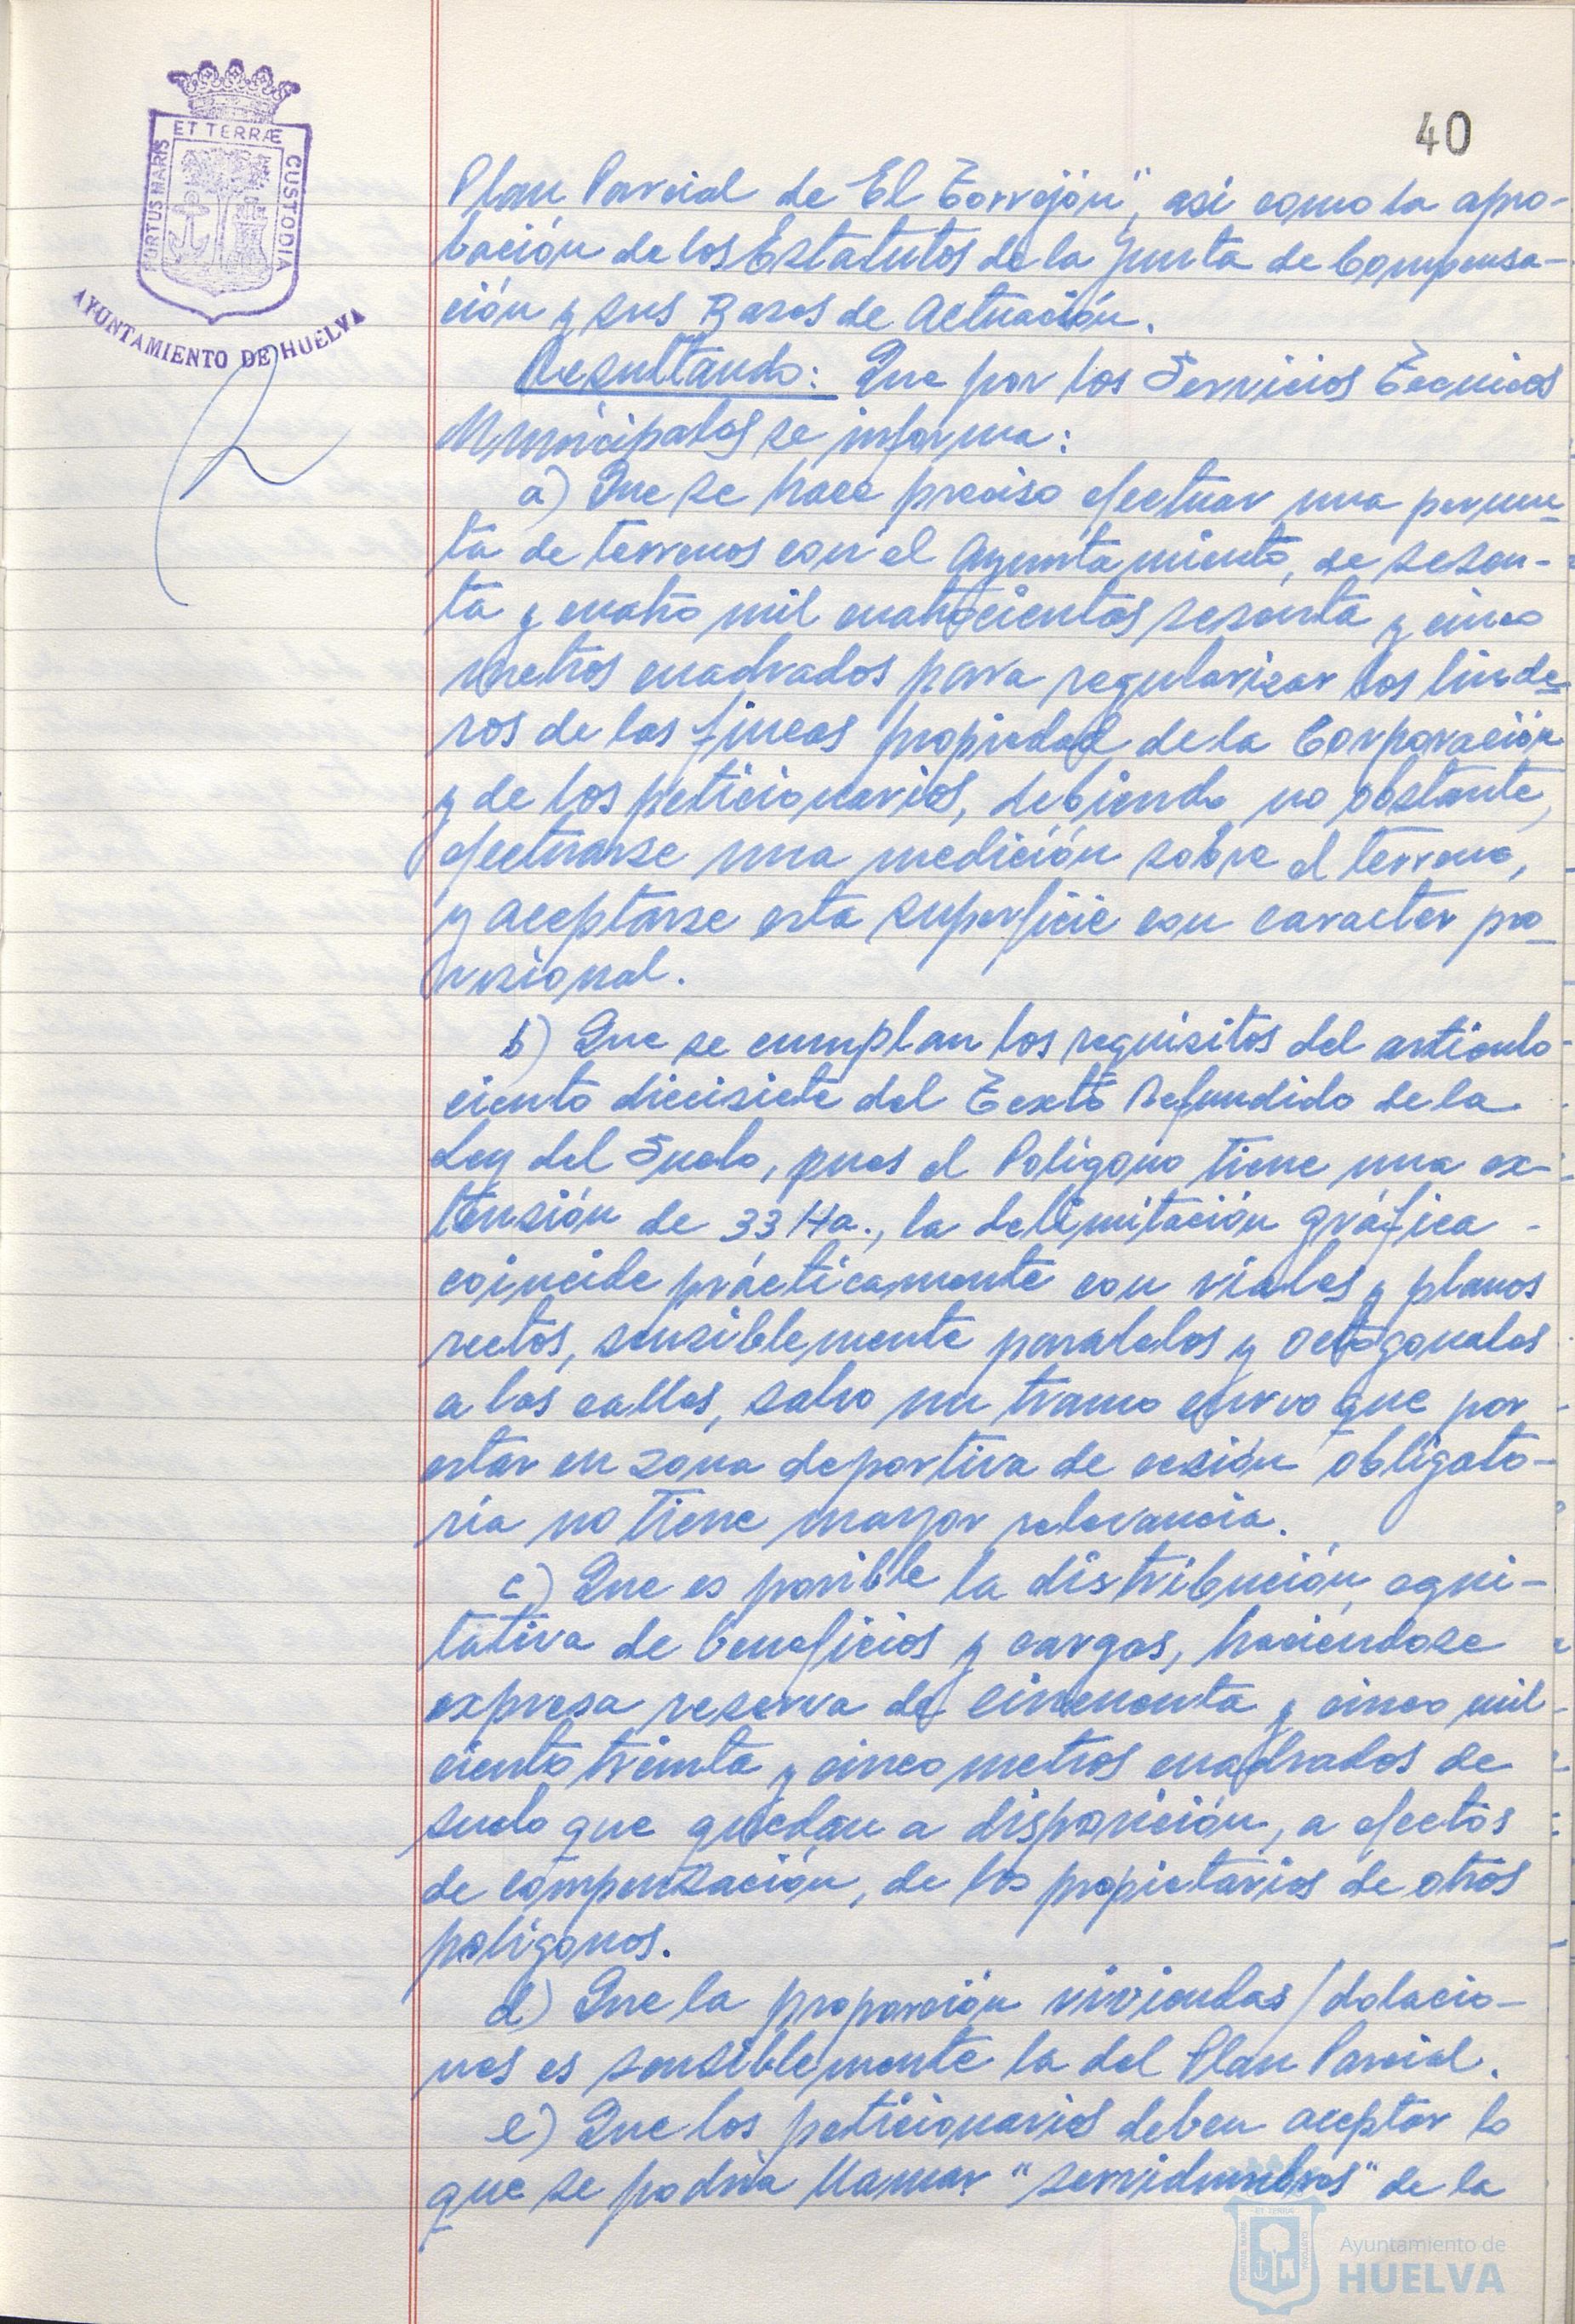 ET TERRÆ
PORTUS MARIS
CUSTODIA
AYUNTAMIENTO DE HUELVA
40
Plan Parcial de "El Torrejón", asi como la apro-
bación de los Estatutos de la Junta de Compensa-
ción y sus Bases de Actuación.
Resultando: Que por los Servicios Tecnicos
Municipales se informa:
a) Que se hace preciso efectuar una permu-
ta de terrenos con el Ayuntamiento, de sesen-
ta y cuatro mil cuatrocientos sesenta y cinco
metros cuadrados para regularizar los linde-
ros de las fincas propiedad de la Corporación
y de los peticionarios, debiendo no obstante,
efectuarse una medición sobre el terreno,
y aceptarse esta superficie con caracter pro-
visional.
b) Que se cumplan los requisitos del articulo
ciento diecisiete del Texto Refundido de la
Ley del Suelo, pues el Poligono tiene una ex-
tensión de 33 Ha., la delimitación gráfica
coincide prácticamente con viales y planos
rectos, sensiblemente paralelos y octogonales
a las calles, salvo un tramo curvo que por
estar en zona deportiva de cesión obligato-
ria no tiene mayor relevancia.
c) Que es posible la distribución equi-
tativa de beneficios y cargas, haciéndose
expresa reserva de cincuenta y cinco mil
ciento treinta y cinco metros cuadrados de
suelo que quedan a disposición, a efectos
de compensación, de los propietarios de otros
poligonos.
d) Que la proporción viviendas/dotacio-
nes es sensiblemente la del Plan Parcial.
e) Que los peticionarios deben aceptar lo
que se podria llamar "servidumbres" de la
Ayuntamiento de
HUELVA